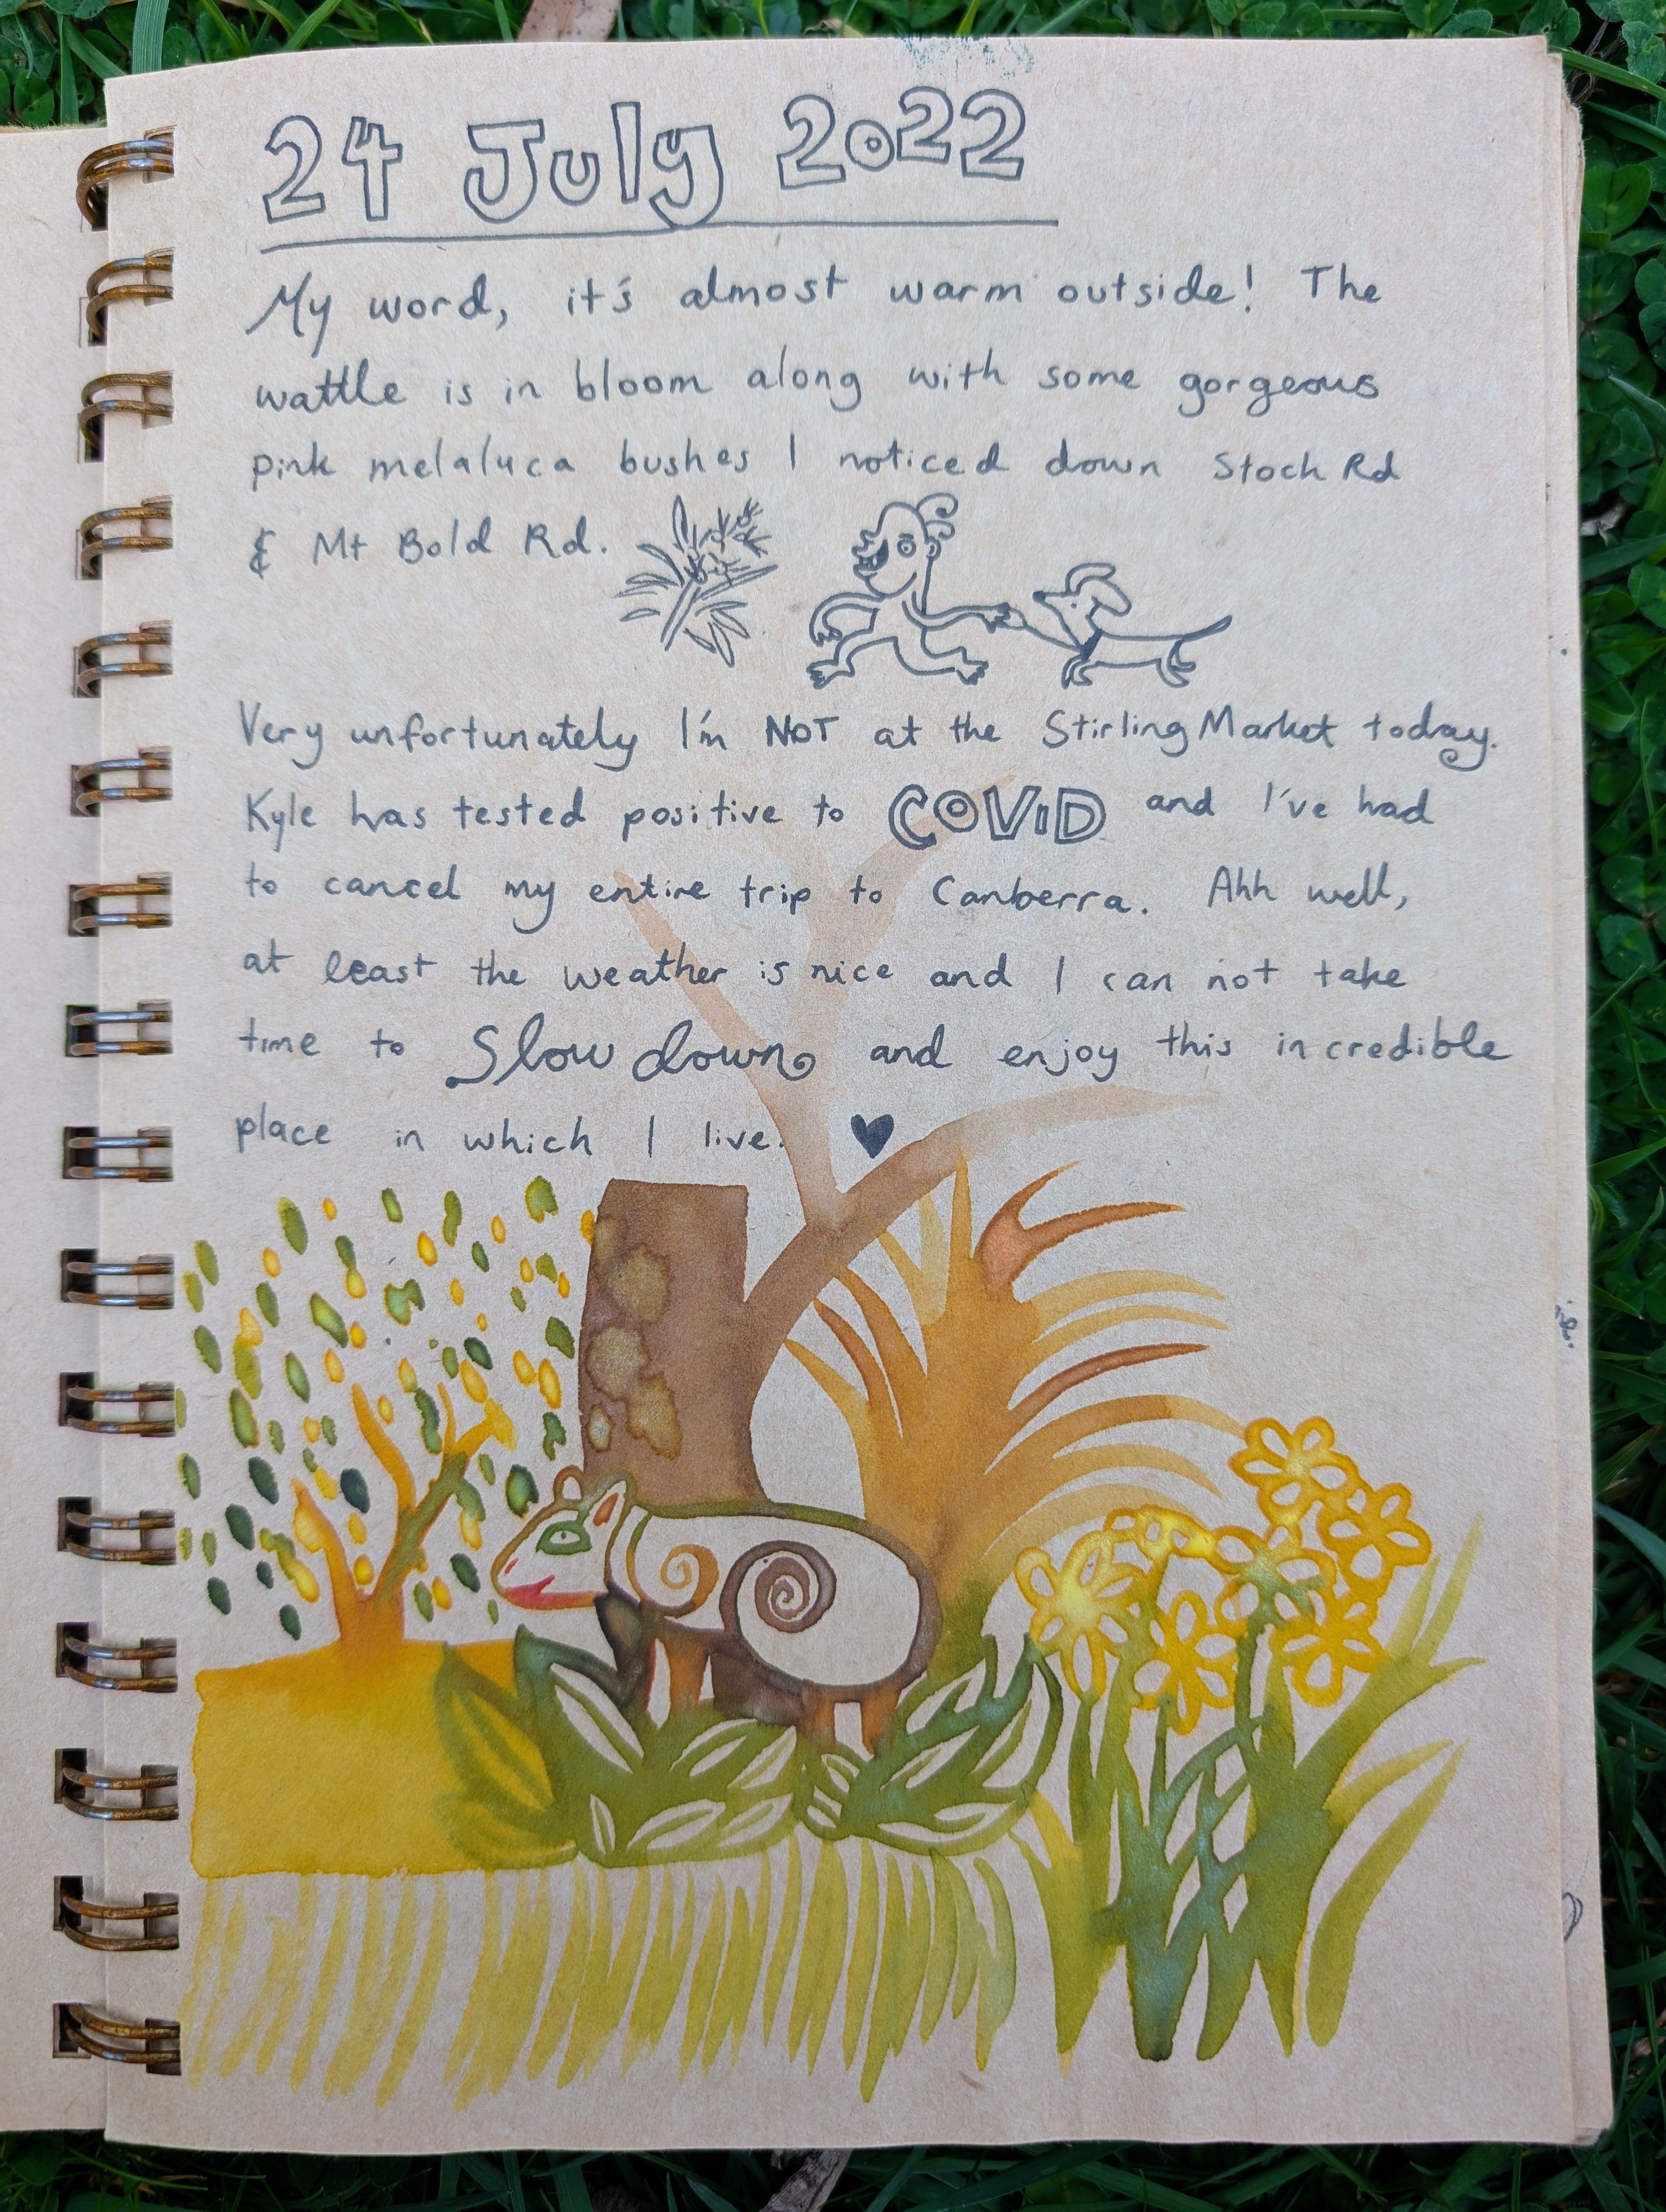 24 July 2022
My word, it's almost warm outside! The
wattle is in bloom along with some gorgeous
pink melaluca bushes I noticed down Stoch Rd
& Mt Bold Rd.
Very unfortunately I'm NOT at the Stirling Market today.
Kyle has tested positive to COViD and I've had
to cancel my entire trip to Canberra. Ahh well,
at least the weather is nice and I can not take
time to Slow down and enjoy this incredible
place in which I live. ♥